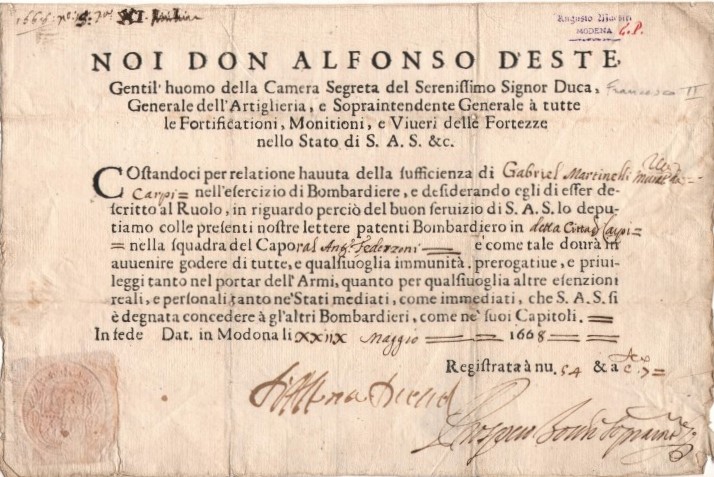 1668
Augusto Maestri
MODENA C.P.
NOI DON ALFONSO D'ESTE,
Gentil'huomo della Camera Segreta del Sereniſſimo Signor Duca, Francesco II
Generale dell'Artiglieria, e Sopraintendente Generale à tutte
le Fortificationi, Monitioni, e Viueri delle Fortezze
nello Stato di S. A. S. &c.
COſtandoci per relatione hauuta della ſufficienza di Gabriel Martinelli
Carpi = nell'eſercizio di Bombardiere, e deſiderando egli di eſſer de-
ſcritto al Ruolo, in riguardo perciò del buon ſeruizio di S. A. S. lo depu-
tiamo colle preſenti noſtre lettere patenti Bombardiero in detta Città di Carpi =
= nella ſquadra del Caporal Ang.º Federzoni = e come tale dourà in
auuenire godere di tutte, e qualſiuoglia immunità, prerogatiue, e priui-
leggi tanto nel portar dell'Armi, quanto per qualſiuoglia altre eſenzioni
reali, e perſonali tanto ne' Stati mediati, come immediati, che S. A. S. ſi
è degnata concedere à gl'altri Bombardieri, come ne' ſuoi Capitoli. =
In fede Dat. in Modona li Maggio 1668 =
Regiſtrata à nu. 54 & a c. 7 =